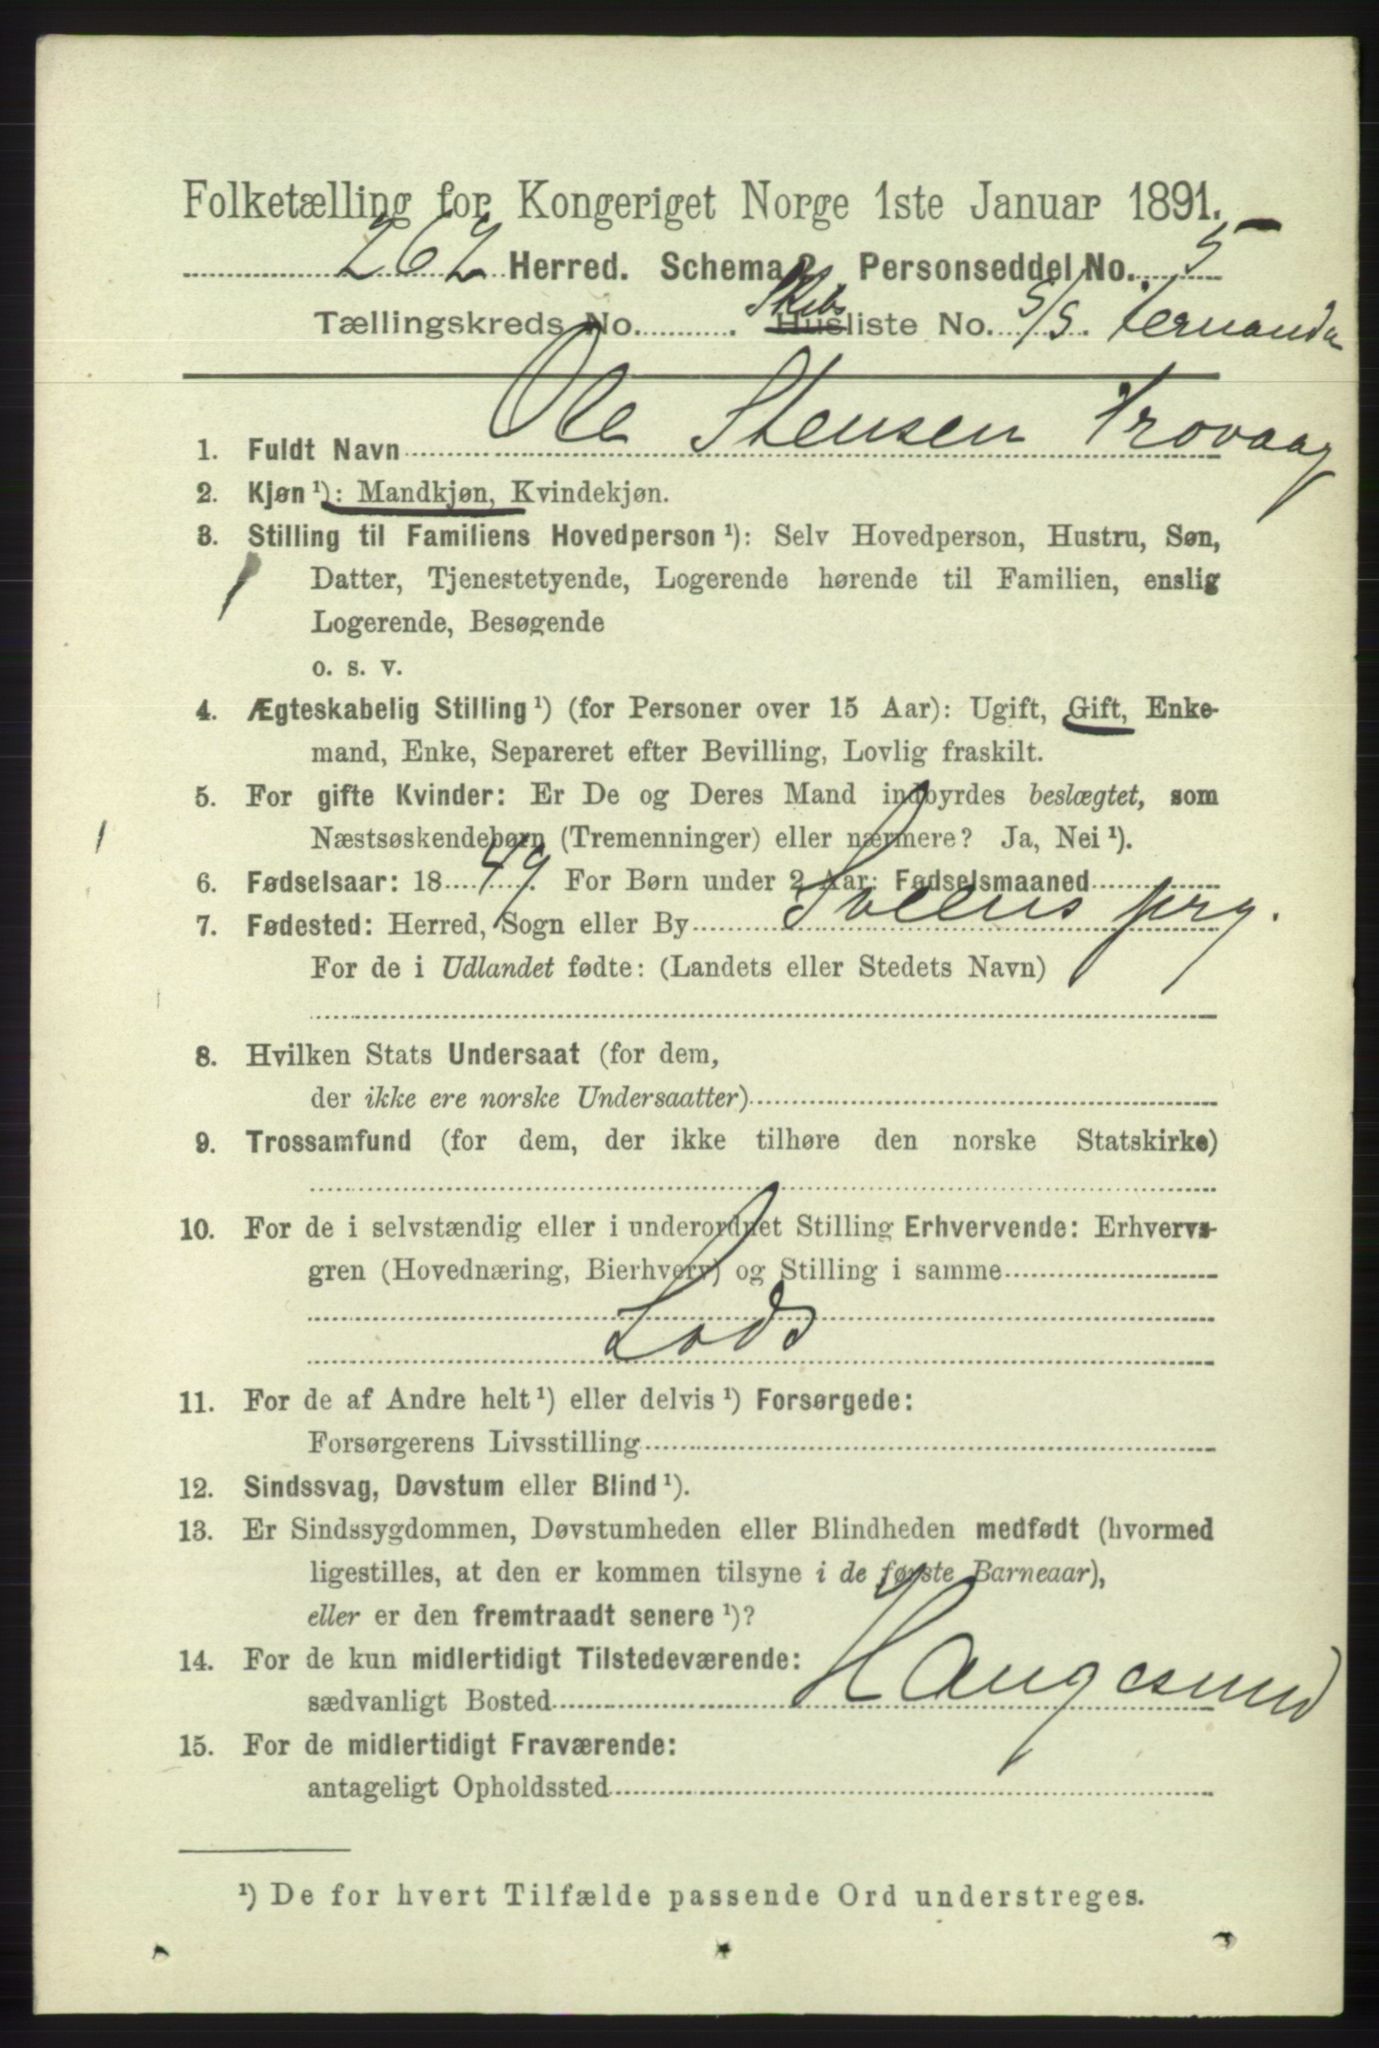 Folketælling for Kongeriget Norge 1ste Januar 1891.
262 Herred. Schema 2. Personseddel No. 5
Tællingskreds No. . Skibs Husliste No. S/S. Fernanda
1. Fuldt Navn Ole Stensen Trovaag
2. Kjøn ¹): Mandkjøn, Kvindekjøn.
3. Stilling til Familiens Hovedperson ¹): Selv Hovedperson, Hustru, Søn,
Datter, Tjenestetyende, Logerende hørende til Familien, enslig
Logerende, Besøgende
o. s. v.
4. Ægteskabelig Stilling ¹) (for Personer over 15 Aar): Ugift, Gift, Enke-
mand, Enke, Separeret efter Bevilling, Lovlig fraskilt.
5. For gifte Kvinder: Er De og Deres Mand indbyrdes beslægtet, som
Næstsøskendebørn (Tremenninger) eller nærmere? Ja, Nei ¹).
6. Fødselsaar: 1849. For Børn under 2 Aar: Fødselsmaaned
7. Fødested: Herred, Sogn eller By prg.
For de i Udlandet fødte: (Landets eller Stedets Navn)
8. Hvilken Stats Undersaat (for dem,
der ikke ere norske Undersaatter)
9. Trossamfund (for dem, der ikke tilhøre den norske Statskirke)
10. For de i selvstændig eller i underordnet Stilling Erhvervende: Erhvervs-
gren (Hovednæring, Bierhverv) og Stilling i samme
Lods
11. For de af Andre helt ¹) eller delvis ¹) Forsørgede:
Forsørgerens Livsstilling
12. Sindssvag, Døvstum eller Blind ¹).
13. Er Sindssygdommen, Døvstumheden eller Blindheden medfødt (hvormed
ligestilles, at den er kommen tilsyne i de første Barneaar),
eller er den fremtraadt senere ¹)?
14. For de kun midlertidigt Tilstedeværende:
sædvanligt Bosted Haugesund
15. For de midlertidigt Fraværende:
antageligt Opholdssted
¹) De for hvert Tilfælde passende Ord understreges.